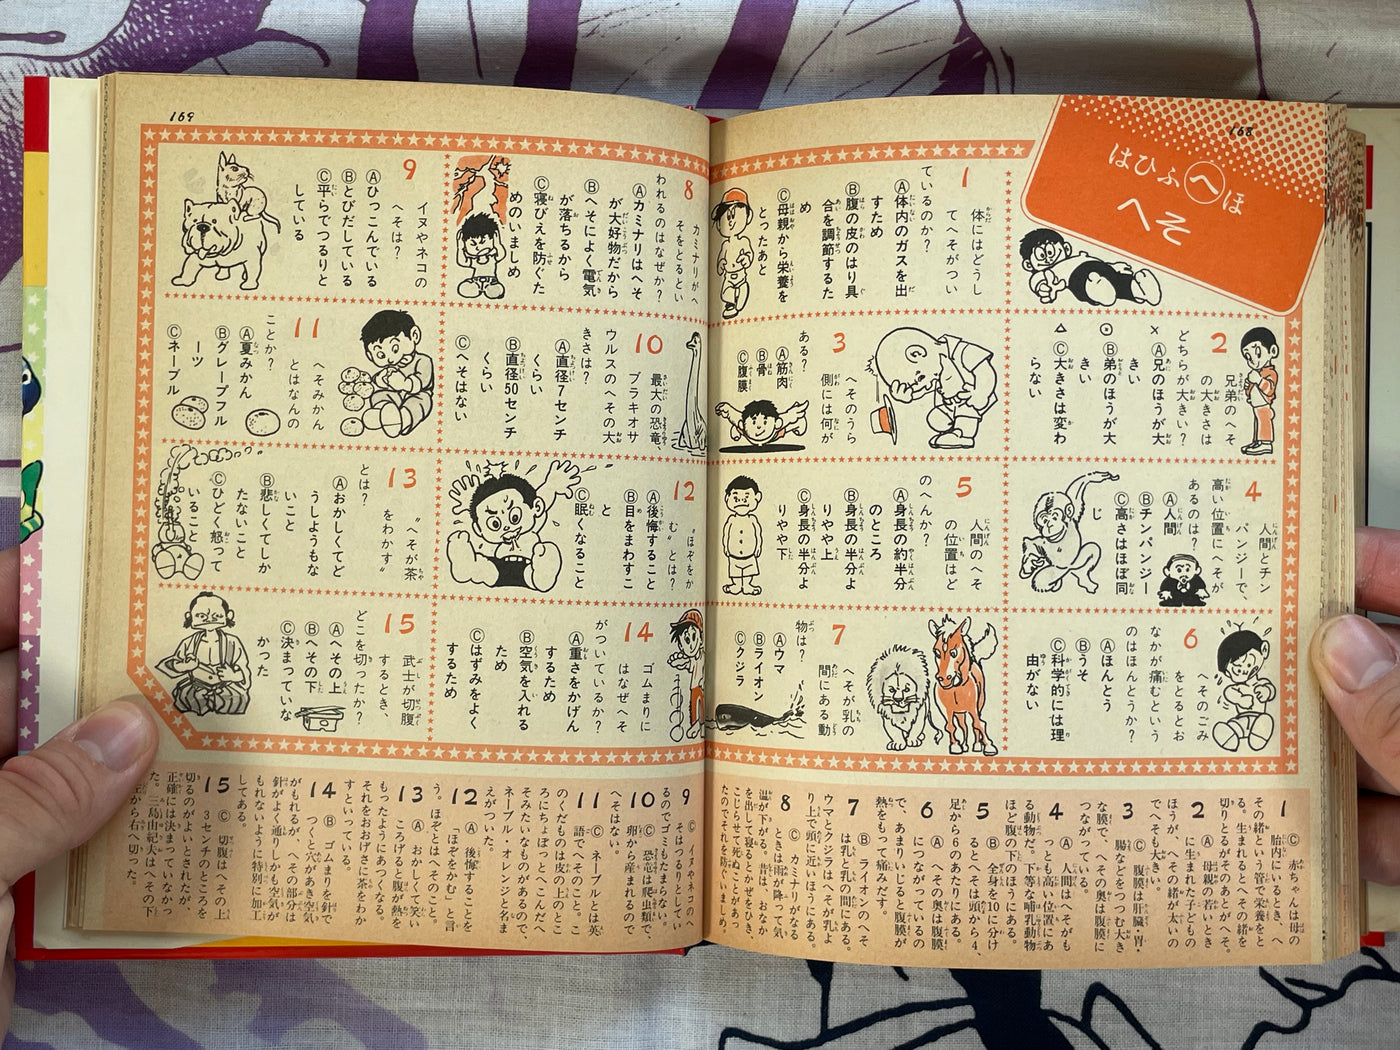 168
はひふへほ
へそ
1
体にはどうし
てへそがつい
ているのか？
Ⓐ体内のガスを出
すため
Ⓑ腹の皮のはり具
合を調節するた
め
Ⓒ母親から栄養を
とったあと
2
兄弟のへそ
の大きさは
どちらが大きい？
×
Ⓐ兄のほうが大
きい
⊙
Ⓑ弟のほうが大
きい
△
Ⓒ大きさは変わ
らない
3
へそのうら
側には何が
ある？
Ⓐ筋肉
Ⓑ骨
Ⓒ腹膜
4
人間とチン
パンジーで、
高い位置にへそが
あるのは？
Ⓐ人間
Ⓑチンパンジー
Ⓒ高さはほぼ同
じ
5
人間のへそ
の位置はど
のへんか？
Ⓐ身長の約半分
のところ
Ⓑ身長の半分よ
りやや上
Ⓒ身長の半分よ
りやや下
6
へそのごみ
をとるとお
なかが痛むという
のはほんとうか？
Ⓐほんとう
Ⓑうそ
Ⓒ科学的には理
由がない
7
へそが乳の
間にある動
物は？
Ⓐウマ
Ⓑライオン
Ⓒクジラ
1 Ⓒ 赤ちゃんは母の
胎内にいるとき、へ
その緒という管で栄養をと
る。生まれるとへその緒を
切りとるが、そのあとがへそ。
2 Ⓐ 母親が若いとき
に生まれた子どもの
ほうが、へその緒が太いの
でへそも大きい。
3 Ⓒ 腹膜は肝臓・胃・
腸などをつつむ大き
な膜で、へその奥は腹膜に
つながっている。
4 Ⓐ 人間はへそがも
っとも高い位置にあ
る動物だ。下等な哺乳動物
ほど腹の下のほうにある。
5 Ⓑ 全身を10に分け
るとへそは頭から4、
足から6のあたりにある。
6 Ⓐ へその奥は腹膜
につながっているの
で、あまりいじると腹膜が
熱をもって痛みだす。
7 Ⓑ ライオンのへそ
は乳と乳の間にある。
ウマとクジラはへそが乳よ
り上で頭に近いほうにある。
8 Ⓒ カミナリがなる
ときは雨が降って気
温が下がる。昔は、おなか
を出して寝るとかぜをひき、
こじらせて死ぬことがあっ
たのでそれを防ぐいましめ。
169
8
カミナリがへ
そをとるとい
われるのはなぜか？
Ⓐカミナリはへそ
が大好物だから
Ⓑへそによく電気
が落ちるから
Ⓒ寝びえを防ぐた
めのいましめ
9
イヌやネコの
へそは？
Ⓐひっこんでいる
Ⓑとびだしている
Ⓒ平らでつるりと
している
10
最大の恐竜、
ブラキオサ
ウルスのへその大
きさは？
Ⓐ直径7センチ
くらい
Ⓑ直径50センチ
くらい
Ⓒへそはない
11
へそみかん
とはなんの
ことか？
Ⓐ夏みかん
Ⓑグレープフル
ーツ
Ⓒネーブル
12
〝ほぞをか
む〟とは？
Ⓐ後悔すること
Ⓑ目をまわすこ
と
Ⓒ眠くなること
13
〝へそが茶
をわかす〟
とは？
Ⓐおかしくてど
うしようもな
いこと
Ⓑ悲しくてしか
たないこと
Ⓒひどく怒って
いること
14
ゴムまりに
はなぜへそ
がついているか？
Ⓐ重さをかげん
するため
Ⓑ空気を入れる
ため
Ⓒはずみをよく
するため
15
武士が切腹
するとき、
どこを切ったか？
Ⓐへその上
Ⓑへその下
Ⓒ決まっていな
かった
9 Ⓒ イヌやネコのへ
そはつるりとしてい
るのでゴミもたまらない。
10 Ⓒ 恐竜は爬虫類で、
卵から産まれるので
へそはない。
11 Ⓒ ネーブルとは英
語でへそのこと。こ
のくだものは皮の上のとこ
ろにちょぽっとへこんだへ
そみたいなものがあるので、
ネーブル・オレンジと名ま
えがついた。
12 Ⓐ 後悔することを
「ほぞをかむ」と言
う。ほぞとはへそのこと。
13 Ⓐ おかしくて笑い
ころげると腹が熱を
もったようにあつくなる。
それをおおげさに茶をわか
すといっている。
14 Ⓑ ゴムまりを針で
つくと穴があき空気
がもれるが、へその部分は
針がよく通りしかも空気が
もれないように特別に加工
してある。
15 Ⓒ 切腹はへその上
3センチのところを
切るのがよいとされたが、
正確には決まっていなかっ
た。三島由紀夫はへその下
左から右へ切った。